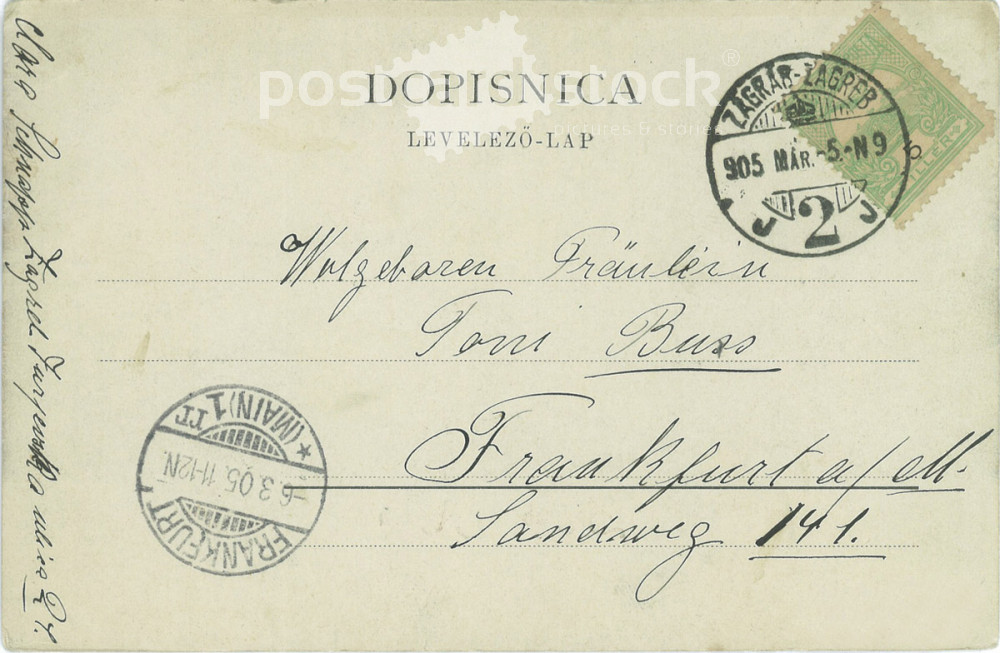 postcardstock®
pictures & stories
DOPISNICA
LEVELEZŐ-LAP
ZÁGRÁB-ZAGREB
905 MÁR.-5.-N9
J 2 J
FILLÉR
Wolgeboren Fräulein
Toni Buss
Frankfurt a/M.
Sandweg 141.
FRANKFURT
(MAIN) 1
-6.3.05. 11-12N.
Zagreb Jurjevska ulica